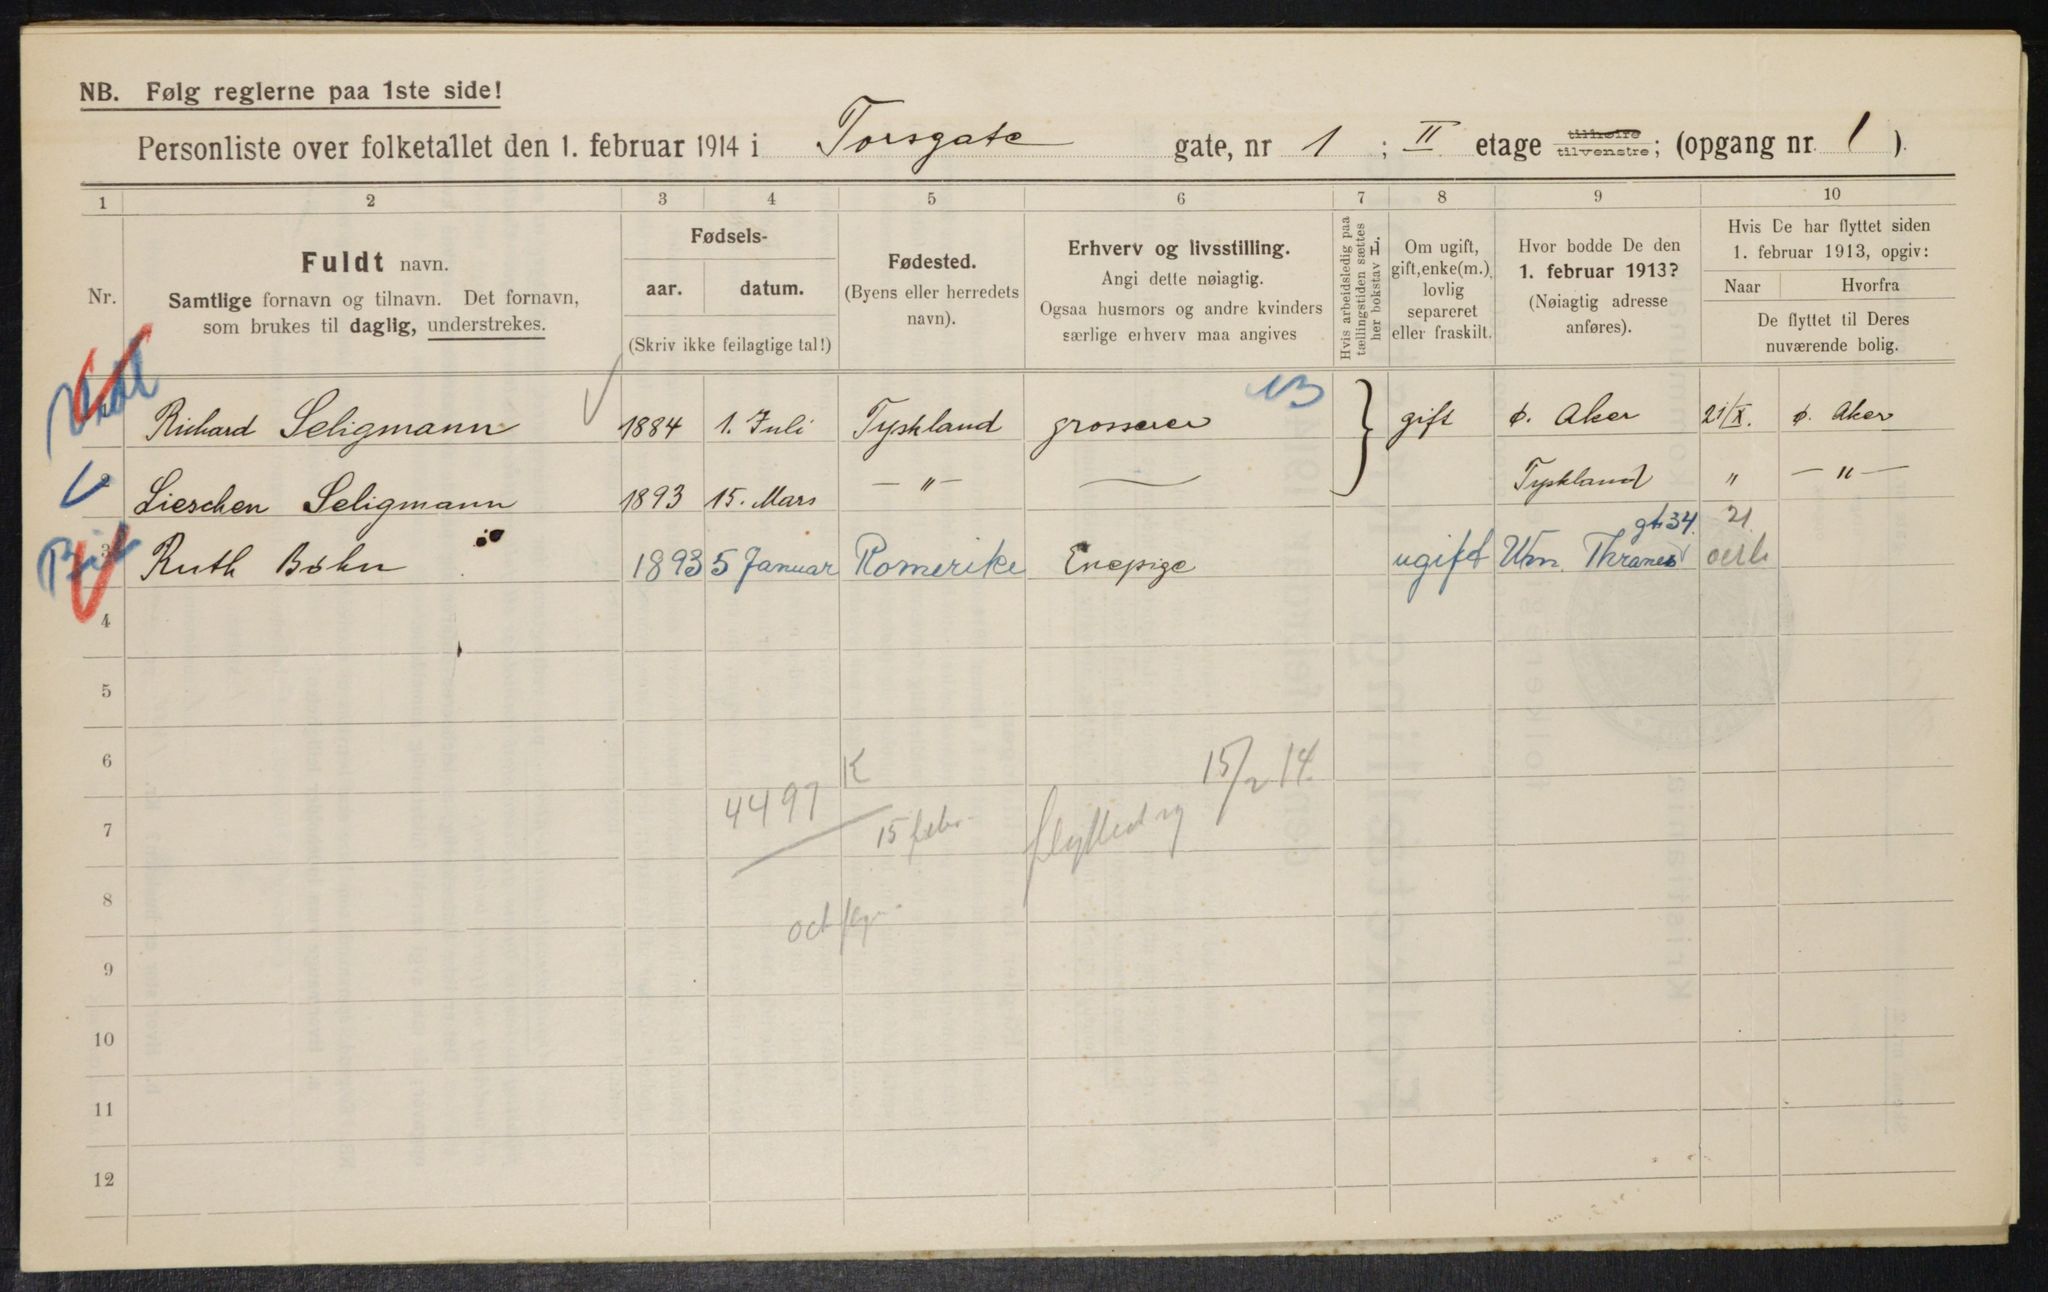 NB. Følg reglerne paa 1ste side!
Personliste over folketallet den 1. februar 1914 i Torsgate gate, nr 1; II etage tilhøire tilvenstre; (opgang nr 1).
1 2 3 4 5 6 7 8 9 10
Nr.
Fuldt navn.
Samtlige fornavn og tilnavn. Det fornavn,
som brukes til daglig, understrekes.
Fødsels-
aar. datum.
(Skriv ikke feilagtige tal!)
Fødested.
(Byens eller herredets
navn).
Erhverv og livsstilling.
Angi dette nøiagtig.
Ogsaa husmors og andre kvinders
særlige erhverv maa angives
Hvis arbeidsledig paa
tællingstiden sættes
her bokstav L.
Om ugift,
gift, enke(m.),
lovlig
separeret
eller fraskilt.
Hvor bodde De den
1. februar 1913?
(Nøiagtig adresse
anføres).
Hvis De har flyttet siden
1. februar 1913, opgiv:
Naar Hvorfra
De flyttet til Deres
nuværende bolig.
Richard Seligmann 1884 1. Juli Tyskland grosserer } gift ø. Aker 21/X. ø. Aker
2 Lieschen Seligmann 1893 15. Mars — " — — Tyskland " — " —
gt. 34. 21
3 Ruth Bøhn 1893 5 Januar Romerike Enepige ugift Wm. Thranes
4
5
6
15/2 14.
K
4497
7
15 febr.
8
9
10
11
12